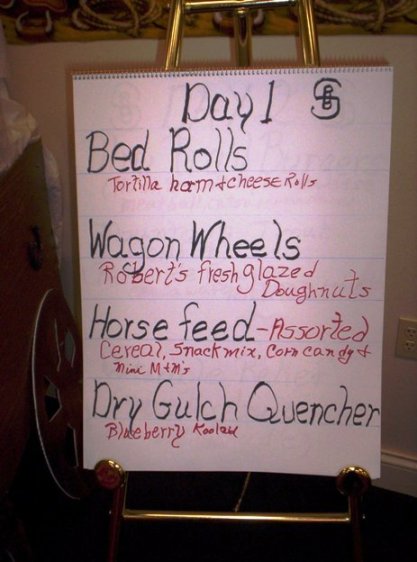 Day 1
Bed Rolls
Tortilla ham & cheese Rolls
Wagon Wheels
Robert's fresh glazed
Doughnuts
Horse feed - Assorted
Cereal, Snack mix, Corn candy &
mini M&M's
Dry Gulch Quencher
Blueberry Koolaid